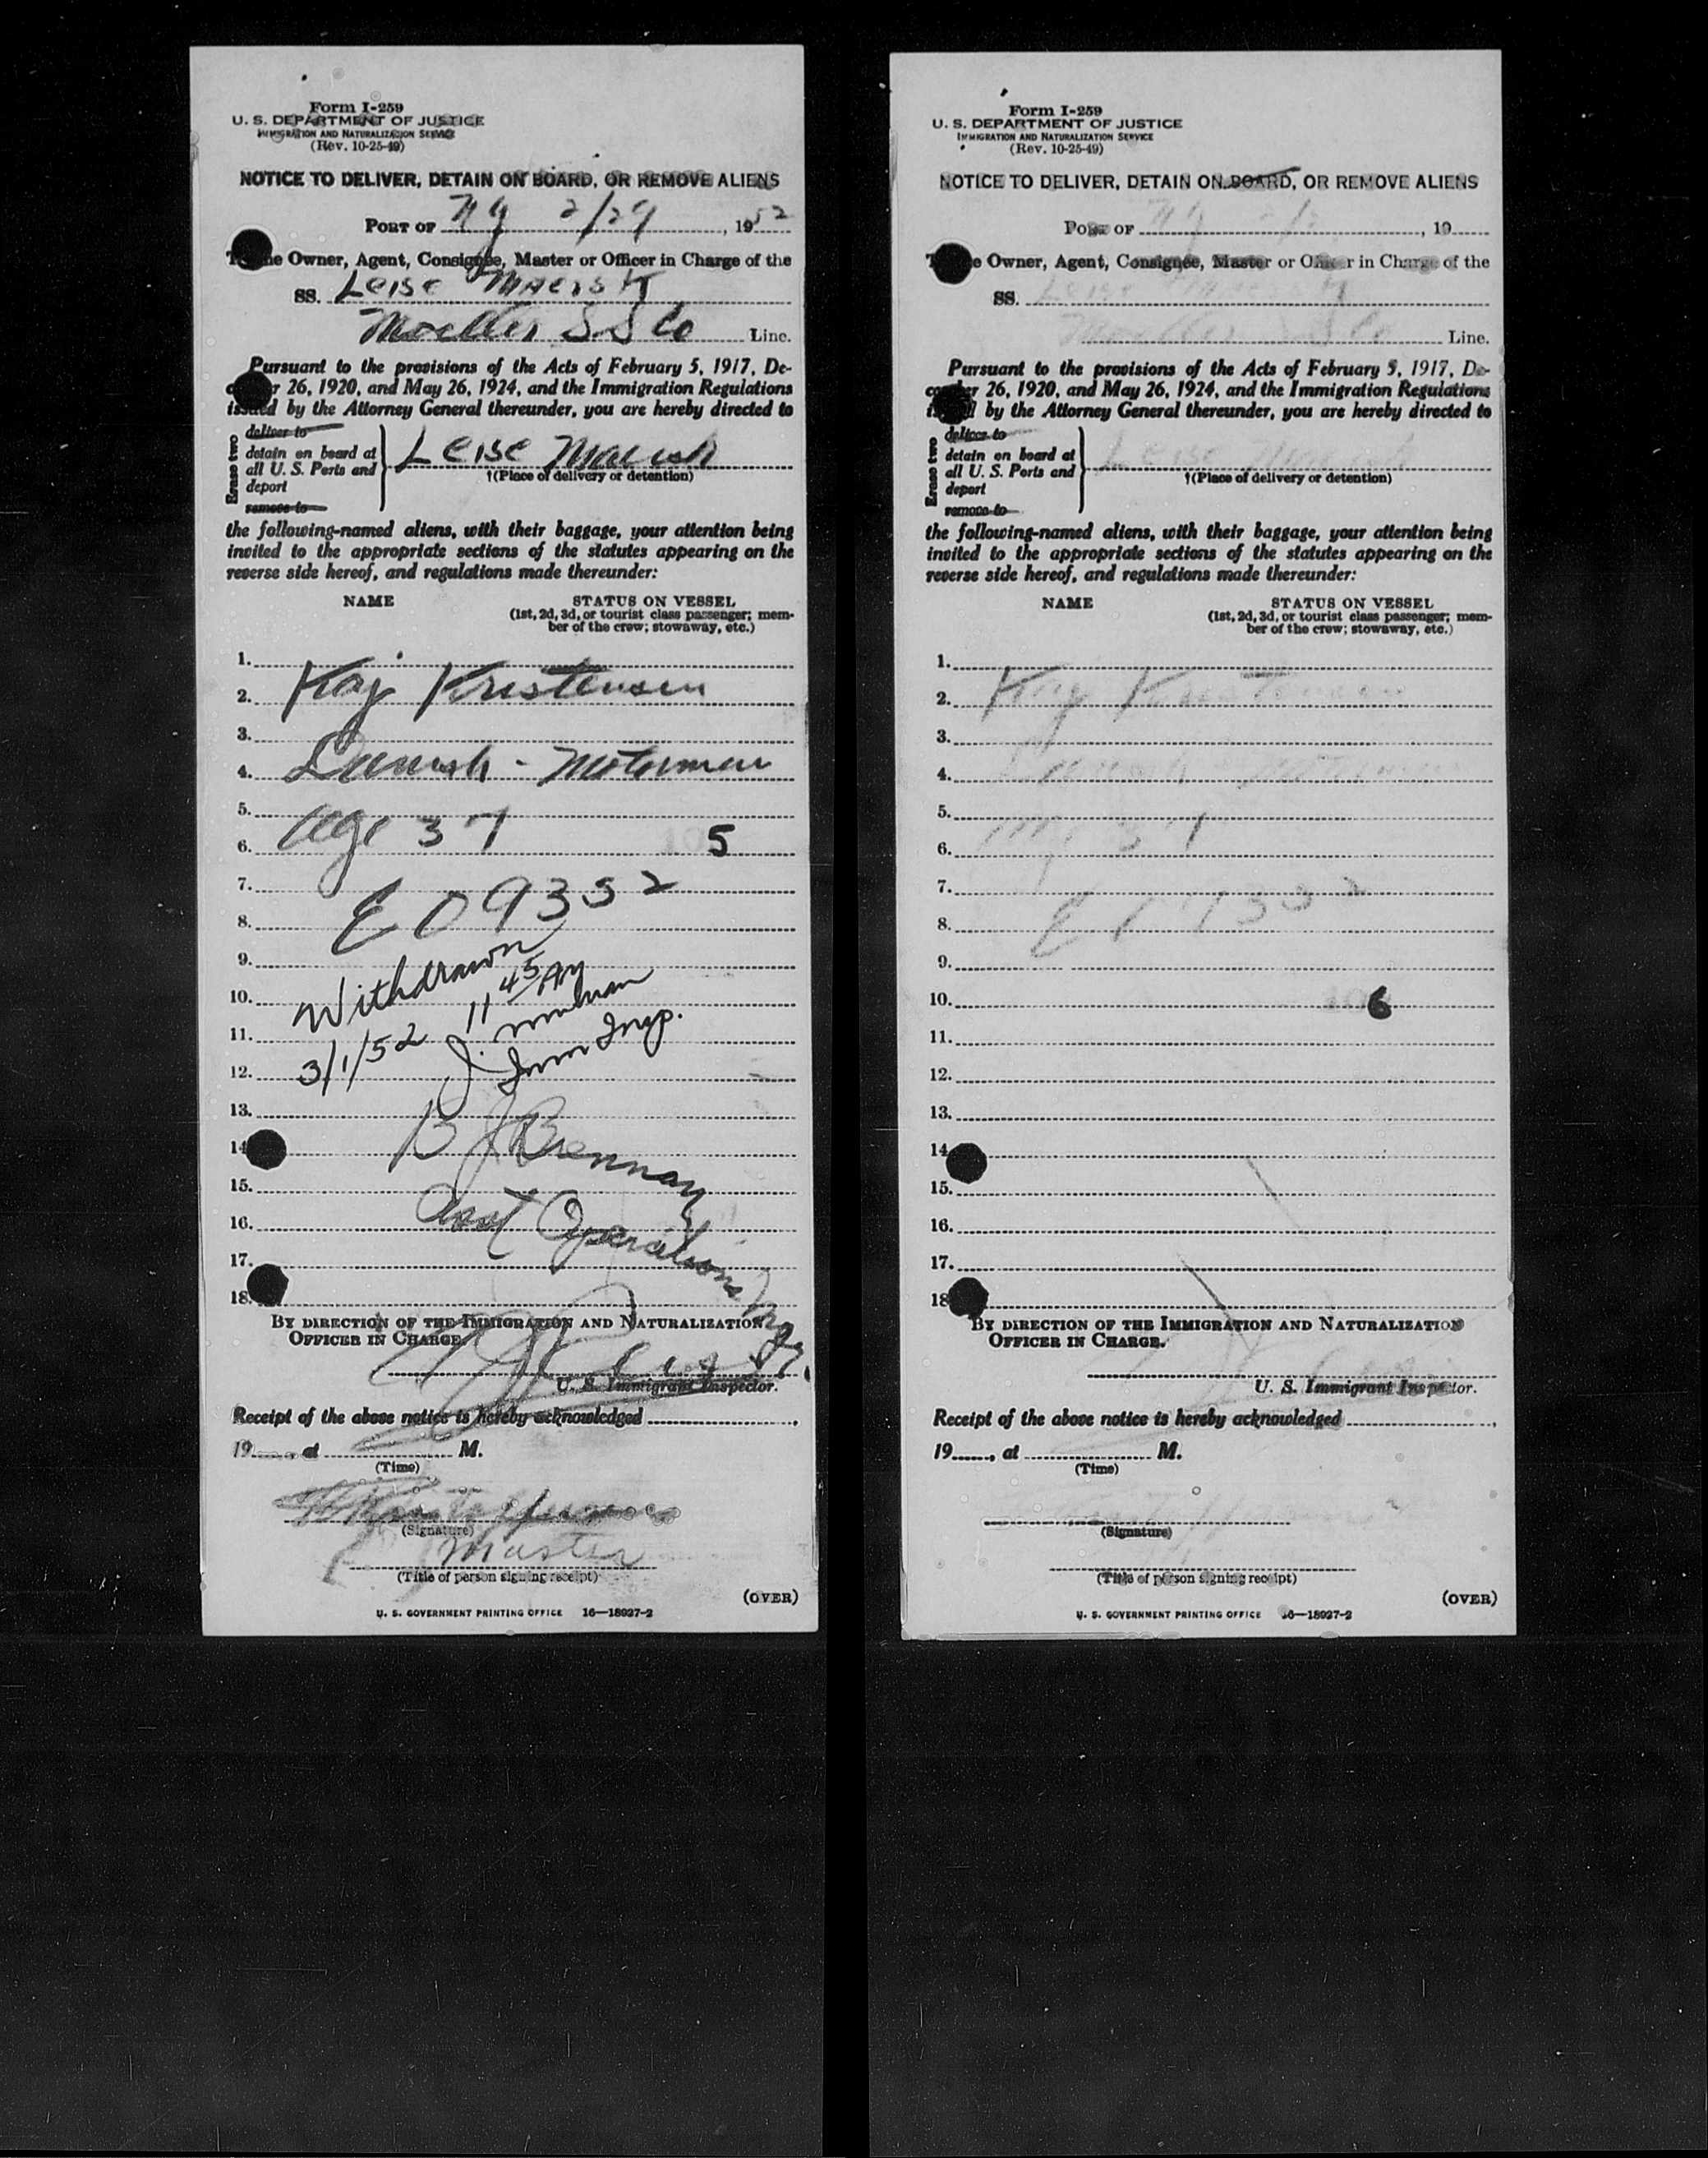 Form I-259
U. S. DEPARTMENT OF JUSTICE
IMMIGRATION AND NATURALIZATION SERVICE
(Rev. 10-25-49)
NOTICE TO DELIVER, DETAIN ON BOARD, OR REMOVE ALIENS
PORT OF NY 2/29, 1952
The Owner, Agent, Consignee, Master or Officer in Charge of the
SS. Leise Maersk
Moeller S.S Co Line.
Pursuant to the provisions of the Acts of February 5, 1917, De-
r 26, 1920, and May 26, 1924, and the Immigration Regulations
issued by the Attorney General thereunder, you are hereby directed to
Erase two
deliver to
detain on board at
all U. S. Ports and
deport
remove to
Leise Maersk
†(Place of delivery or detention)
the following-named aliens, with their baggage, your attention being
invited to the appropriate sections of the statutes appearing on the
reverse side hereof, and regulations made thereunder:
NAME STATUS ON VESSEL
(1st, 2d, 3d, or tourist class passenger; mem-
ber of the crew; stowaway, etc.)
1.
2. Kaj Kristensen
3.
4. Danish - Motorman
5.
6. age 37 5
7.
8. E 09352
9.
10. Withdrawn 11 45 AM
11. 3/1/52 J.
12. Imm Insp.
13.
14. B J Brennan
15.
16. Asst Operations Mgr.
17.
18.
BY DIRECTION OF THE IMMIGRATION AND NATURALIZATION
OFFICER IN CHARGE.
U. S. Immigrant Inspector.
Receipt of the above notice is hereby acknowledged
19 , at M.
(Time)
(Signature)
Master
(Title of person signing receipt)
(OVER)
U. S. GOVERNMENT PRINTING OFFICE 16—18027-2
Form I-259
U. S. DEPARTMENT OF JUSTICE
IMMIGRATION AND NATURALIZATION SERVICE
(Rev. 10-25-49)
NOTICE TO DELIVER, DETAIN ON BOARD, OR REMOVE ALIENS
PORT OF NY , 19
e Owner, Agent, Consignee, Master or Officer in Charge of the
SS. Leise
Moeller S S Co Line.
Pursuant to the provisions of the Acts of February 5, 1917, De-
cember 26, 1920, and May 26, 1924, and the Immigration Regulations
by the Attorney General thereunder, you are hereby directed to
Erase two
deliver to
detain on board at
all U. S. Ports and
deport
remove to
Leise
†(Place of delivery or detention)
the following-named aliens, with their baggage, your attention being
invited to the appropriate sections of the statutes appearing on the
reverse side hereof, and regulations made thereunder:
NAME STATUS ON VESSEL
(1st, 2d, 3d, or tourist class passenger; mem-
ber of the crew; stowaway, etc.)
1.
2. Kaj Kristensen
3.
4.
5.
6. 37
7.
8. E
9.
10. 6
11.
12.
13.
14.
15.
16.
17.
18
BY DIRECTION OF THE IMMIGRATION AND NATURALIZATION
OFFICER IN CHARGE.
U. S. Immigrant Inspector.
Receipt of the above notice is hereby acknowledged
19 , at M.
(Time)
(Signature)
(Title of person signing receipt)
(OVER)
U. S. GOVERNMENT PRINTING OFFICE 16—18027-2